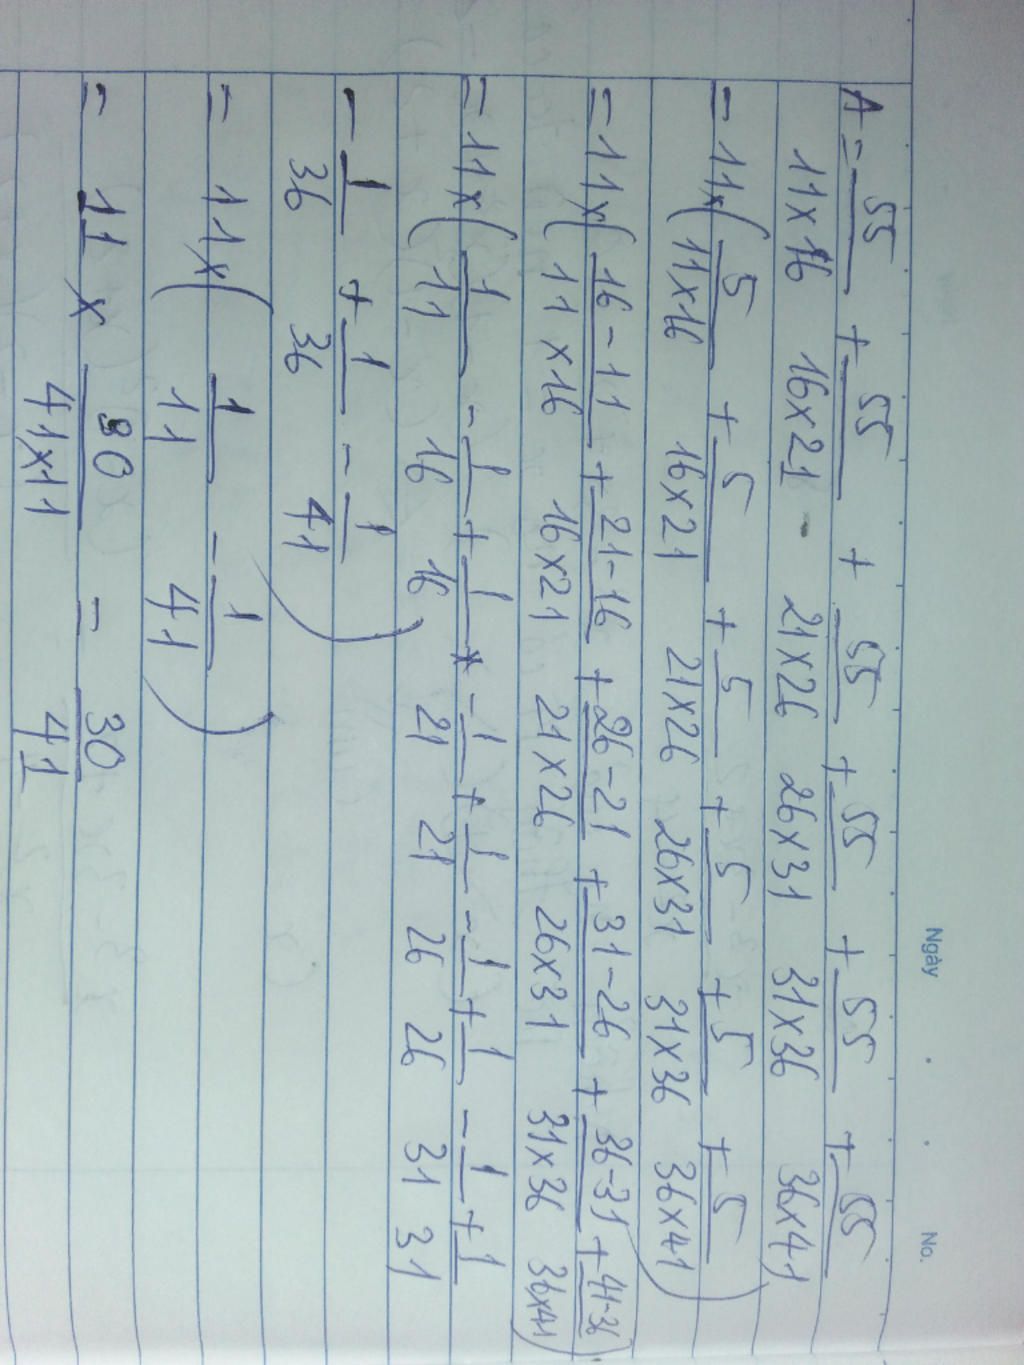 Ngày No.
A = 55/11x16 + 55/16x21 + 55/21x26 + 55/26x31 + 55/31x36 + 55/36x41
= 11x( 5/11x16 + 5/16x21 + 5/21x26 + 5/26x31 + 5/31x36 + 5/36x41 )
= 11x( 16-11/11x16 + 21-16/16x21 + 26-21/21x26 + 31-26/26x31 + 36-31/31x36 + 41-36/36x41 )
= 11x( 1/11 - 1/16 + 1/16 - 1/21 + 1/21 - 1/26 + 1/26 - 1/31 + 1/31
- 1/36 + 1/36 - 1/41 )
= 11x( 1/11 - 1/41 )
= 11 x 30/41x11 = 30/41